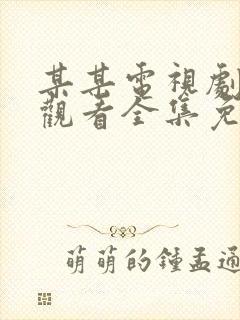 某某電視劇
觀看全集免
萌萌的鍾孟通